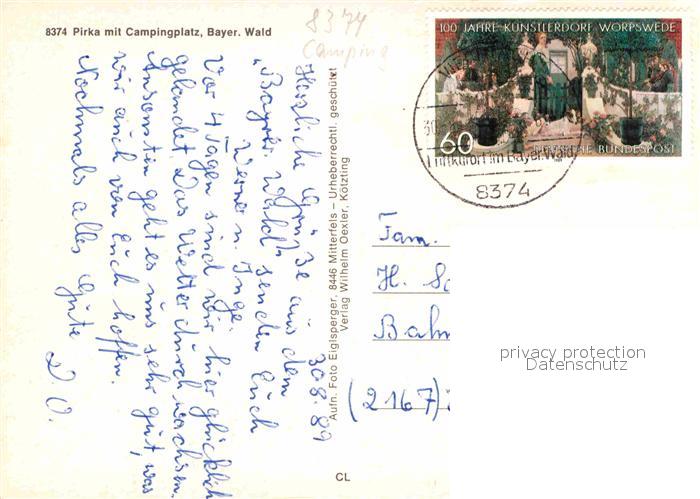 8374 Pirka mit Campingplatz, Bayer. Wald
8374
Camping
30.8.89
Herzliche Grüße aus dem
„Bayer. Wald" senden Euch
Werner u. Inge.
Vor 4 Tagen sind wir hier glücklich
gelandet. Das Wetter durchwachsen.
Ansonsten geht es uns sehr gut, was
wir auch von Euch hoffen.
Nochmals alles Gute
D. O.
Aufn. Foto Eiglsperger, 8446 Mitterfels – Urheberrechtl. geschützt
Verlag Wilhelm Oexler, Kötzting
CL
100 JAHRE KÜNSTLERDORF WORPSWEDE
60
DEUTSCHE BUNDESPOST
Luftkurort im Bayer. Wald
8374
Fam.
H. Sc
Bahn
(2167)
privacy protection
Datenschutz